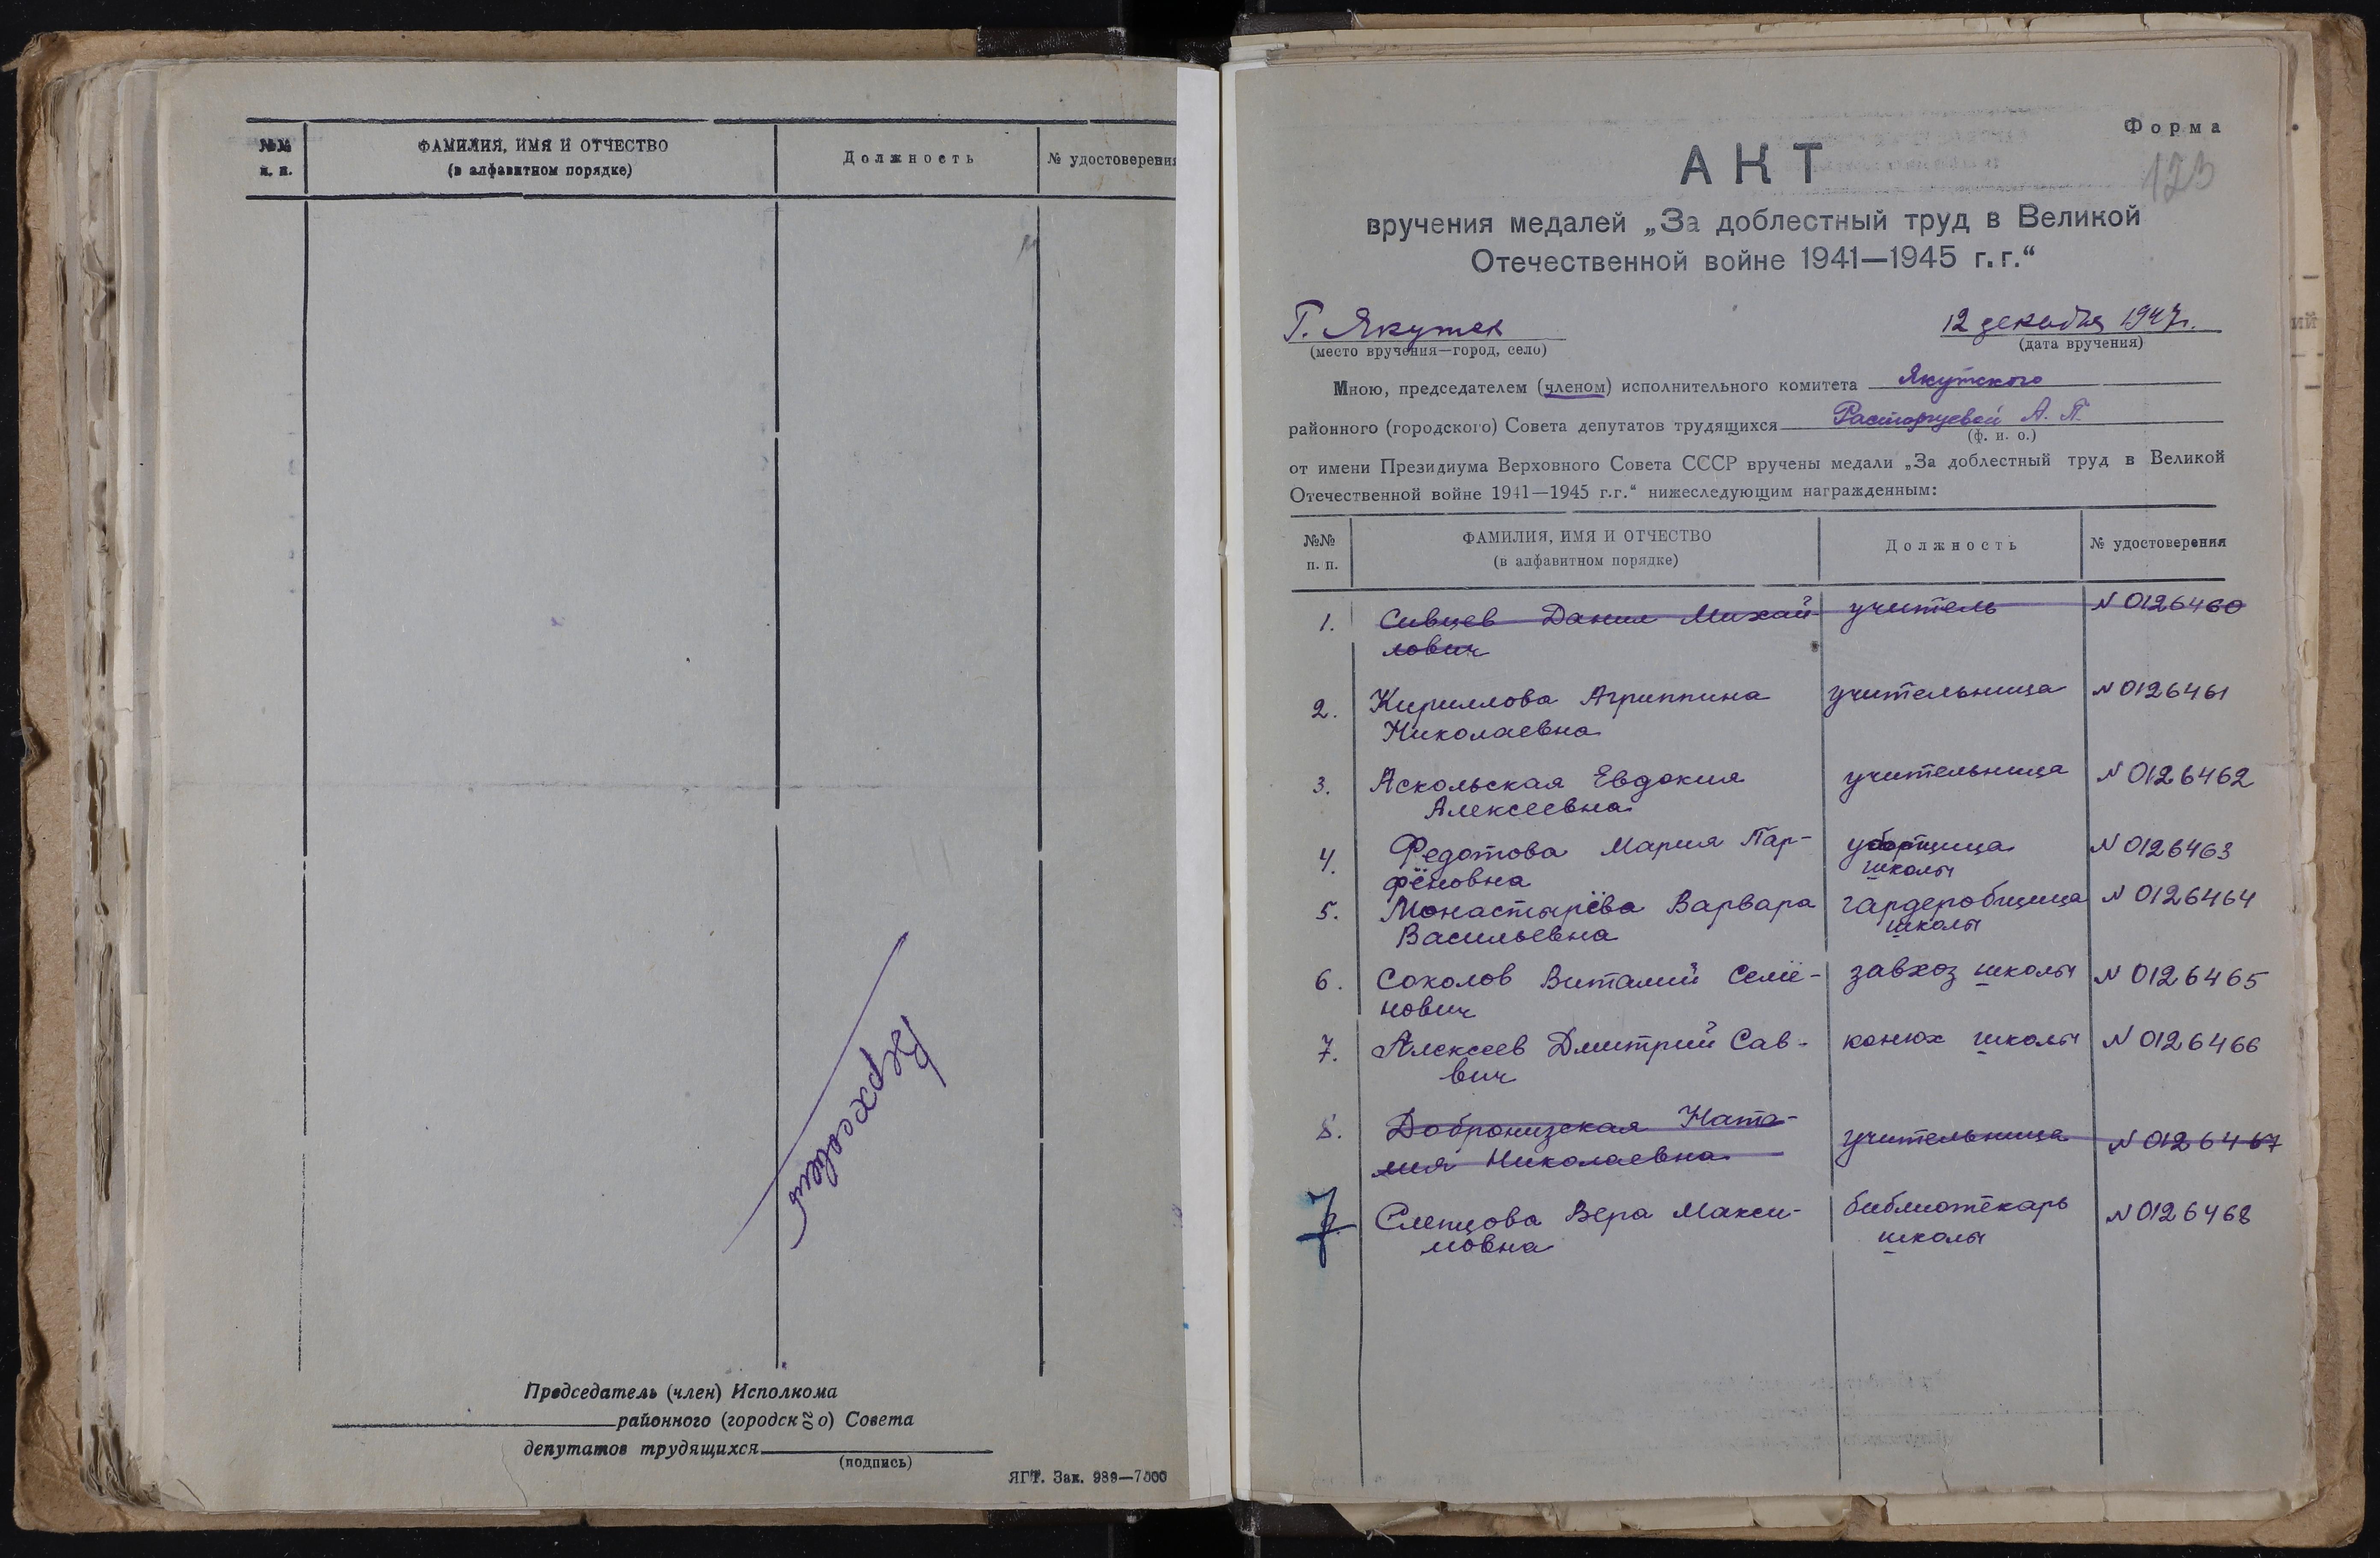 №№ п. п.
ФАМИЛИЯ, ИМЯ И ОТЧЕСТВО
(в алфавитном порядке)
Должность
№ удостоверения
Председатель (член) Исполкома
районного (городского) Совета
депутатов трудящихся
(подпись)
ЯГТ. Зак. 989—7000
Форма
123
АКТ
вручения медалей „За доблестный труд в Великой
Отечественной войне 1941—1945 г.г.“
Г. Якутск
12 декабря 1947г.
(место вручения—город, село)
(дата вручения)
Мною, председателем (членом) исполнительного комитета Якутского
районного (городского) Совета депутатов трудящихся Расторгуевой А. П.
(ф. и. о.)
от имени Президиума Верховного Совета СССР вручены медали „За доблестный труд в Великой
Отечественной войне 1941—1945 г.г.“ нижеследующим награжденным:
№№ п. п.
ФАМИЛИЯ, ИМЯ И ОТЧЕСТВО
(в алфавитном порядке)
Должность
№ удостоверения
1. Сивцев Данил Михай- учитель N 0126460
лович
2. Кириллова Агриппина учительница N 0126461
Николаевна
3. Аскольская Евдокия учительница N 0126462
Алексеевна
4. Федотова Мария Пар- уборщица N 0126463
фёновна школы
5. Монастырёва Варвара гардеробщица N 0126464
Васильевна школы
6. Соколов Виталий Семё- завхоз школы N 0126465
нович
7. Алексеев Дмитрий Сав- конюх школы N 0126466
вич
8. Доброницкая Ната- учительница N 0126467
лия Николаевна
7 Слепцова Вера Макси- библиотекарь N 0126468
мовна школы